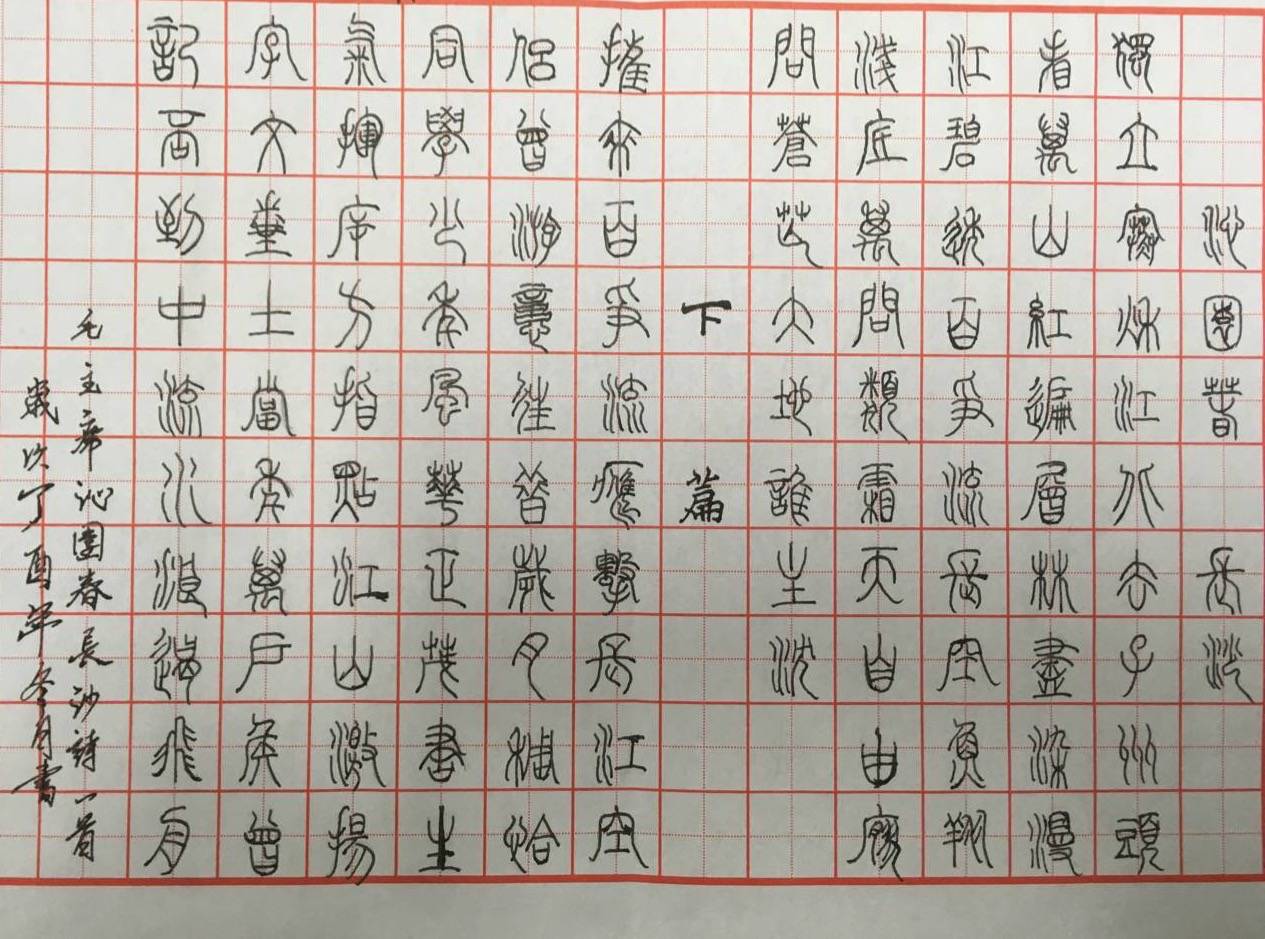 沁園春 長沙
獨立寒秋江北去子州頭
看萬山紅遍層林盡染漫
江碧透百爭流長空魚翔
淺底萬問類霜天自由廖
問蒼茫大地誰主沈
下 篇
攜來百爭流鷹擊長江空
侶曾游憶往昔歲月稠恰
同學少年風華正茂書生
氣揮斥方指點江山激揚
字文糞土當年萬戶侯曾
記否到中流水浪遏飛舟
毛主席沁園春長沙詩一首
歲次丁酉年冬月書